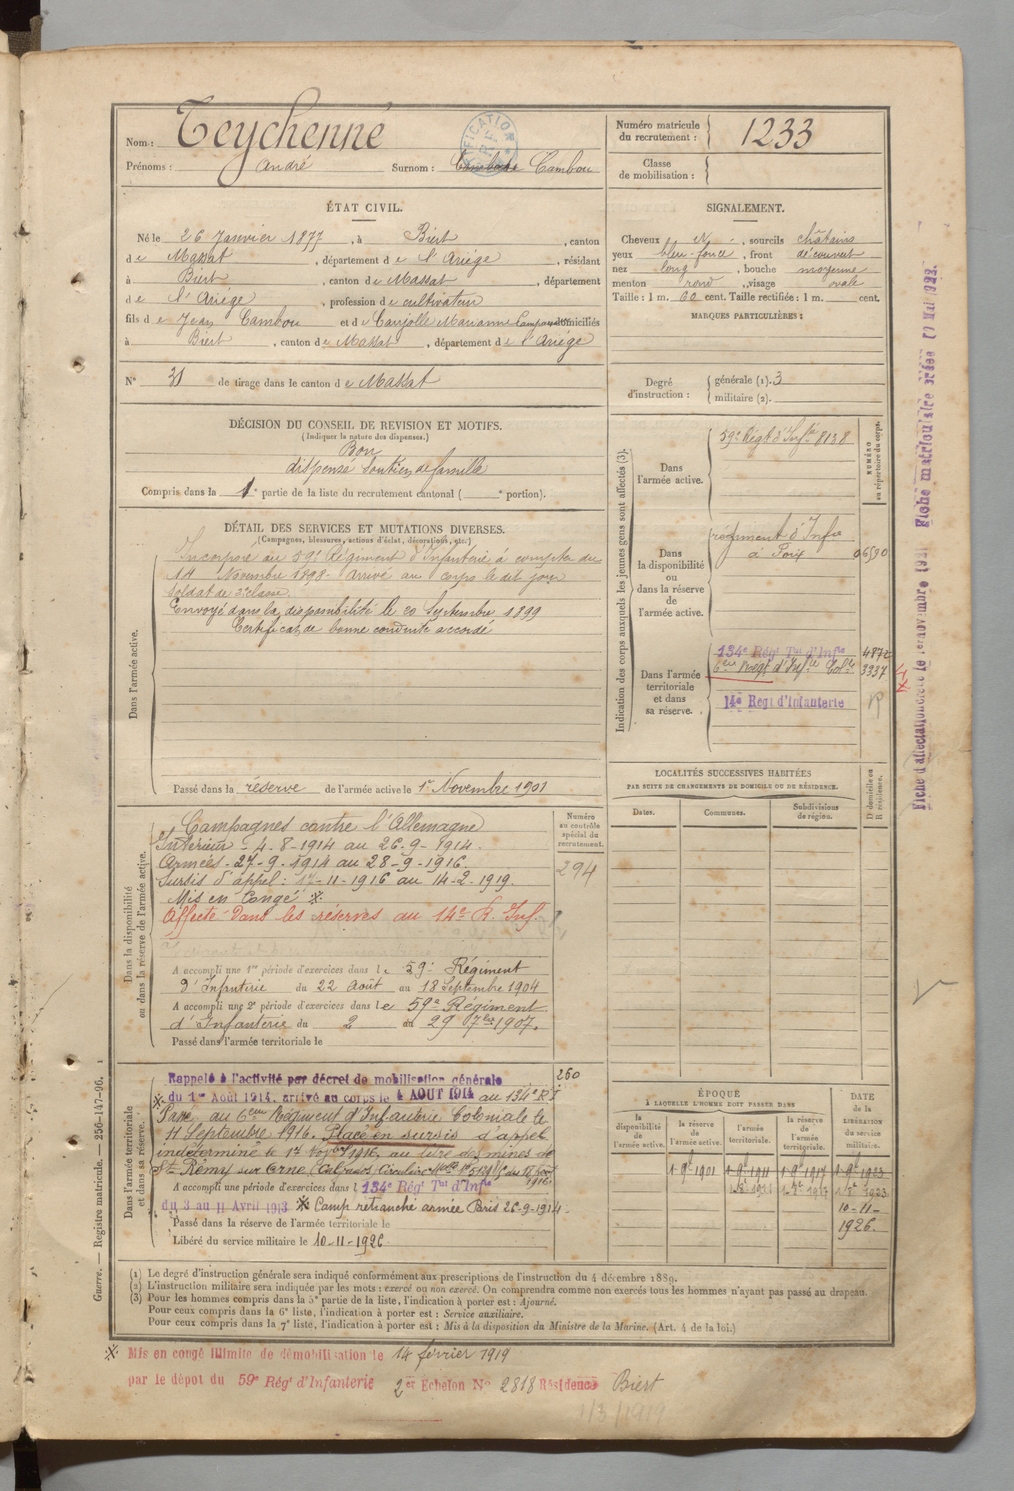 Nom : Teychenné
Prénoms : André Surnom : Cambou
Numéro matricule du recrutement : 1233
Classe de mobilisation :
ÉTAT CIVIL.
Né le 26 Janvier 1877, à Biert, canton
de Massat, département de l'Ariége, résidant
à Biert, canton de Massat, département
de l'Ariége, profession de cultivateur
fils de Jean Cambou et de Caujolle Marianne domiciliés
à Biert, canton de Massat, département de l'Ariége
N° 31 de tirage dans le canton de Massat
SIGNALEMENT.
Cheveux , sourcils châtains
yeux bleu-foncé, front découvert
nez long, bouche moyenne
menton rond, visage ovale
Taille : 1 m. 60 cent. Taille rectifiée : 1 m. cent.
MARQUES PARTICULIÈRES :
Degré d'instruction : générale (1). 3
militaire (2).
DÉCISION DU CONSEIL DE REVISION ET MOTIFS.
(Indiquer la nature des dispenses.)
Bon
dispensé soutien de famille
Compris dans la 1e partie de la liste du recrutement cantonal ( e portion).
DÉTAIL DES SERVICES ET MUTATIONS DIVERSES.
(Campagnes, blessures, actions d'éclat, décorations, etc.)
Dans l'armée active.
Incorporé au 59e Régiment d'Infanterie à compter du
14 Novembre 1898 - Arrivé au corps le dit jour
Soldat de 2e classe.
Envoyé dans la disponibilité le 20 Septembre 1899
Certificat de bonne conduite accordé
Passé dans la réserve de l'armée active le 1er Novembre 1901
Indication des corps auxquels les jeunes gens sont affectés (3).
NUMÉRO au répertoire du corps.
Dans l'armée active. 59e Régt d'Infie 8138
Dans la disponibilité ou dans la réserve de l'armée active.
régiment d'Infie
à Foix
Dans l'armée territoriale et dans sa réserve.
134e Régt Tal d'Infie 4872
6eme Regt d'Infie Colle 3337
14e Regt d'Infanterie
LOCALITÉS SUCCESSIVES HABITÉES
PAR SUITE DE CHANGEMENTS DE DOMICILE OU DE RÉSIDENCE.
D domicile ou R résidence.
Dates. Communes. Subdivisions de région.
Dans la disponibilité ou dans la réserve de l'armée active.
Numéro au contrôle spécial du recrutement.
294
Campagnes contre l'Allemagne
Intérieur - 4-8-1914 au 26-9-1914.
Armées - 27-9-1914 au 28-9-1916.
Sursis d'appel : 17-11-1916 au 14-2-1919.
Mis en Congé
Affecté dans les réserves au 14e R. Inf.
A accompli une 1re période d'exercices dans le 59e Régiment
d'Infanterie du 22 Août au 18 Septembre 1904
A accompli une 2e période d'exercices dans le 59e Régiment
d'Infanterie du 2 au 29 7bre 1907.
Passé dans l'armée territoriale le
Dans l'armée territoriale et dans sa réserve.
260
Rappelé à l'activité par décret de mobilisation générale
du 1er Août 1914, arrivé au corps le 4 AOUT 1914 au 134e RI
Passé au 6eme Régiment d'Infanterie Coloniale le
11 Septembre 1916. Placé en sursis d'appel
indéterminé le 17 1916, au titre des mines de
St Rémy sur Orne, Calvados, Circulaire
1916.
A accompli une période d'exercices dans l 134e Régt Tal d'Infie
du 3 au 11 Avril 1913 Camp retranché armée Paris 26-9-1914-
Passé dans la réserve de l'armée territoriale le
Libéré du service militaire le 10-11-1926
ÉPOQUE
A LAQUELLE L'HOMME DOIT PASSER DANS
la disponibilité de l'armée active. la réserve de l'armée active. l'armée territoriale. la réserve de l'armée territoriale.
DATE de la LIBÉRATION du service militaire.
1 9bre 1901 1 9bre 1911 1 9bre 1917 1 9bre 1923
10-11-
1926.
(1) Le degré d'instruction générale sera indiqué conformément aux prescriptions de l'instruction du 4 décembre 1889.
(2) L'instruction militaire sera indiquée par les mots : exercé ou non exercé. On comprendra comme non exercés tous les hommes n'ayant pas passé au drapeau.
(3) Pour les hommes compris dans la 5e partie de la liste, l'indication à porter est : Ajourné.
Pour ceux compris dans la 6e liste, l'indication à porter est : Service auxiliaire.
Pour ceux compris dans la 7e liste, l'indication à porter est : Mis à la disposition du Ministre de la Marine. (Art. 4 de la loi.)
Mis en congé illimité de démobilisation le 14 février 1919
par le dépôt du 59e Régt d'Infanterie 2er Echelon No 2818 Résidence Biert
1/3/1919
Guerre. — Registre matricule. — 256-147-96.